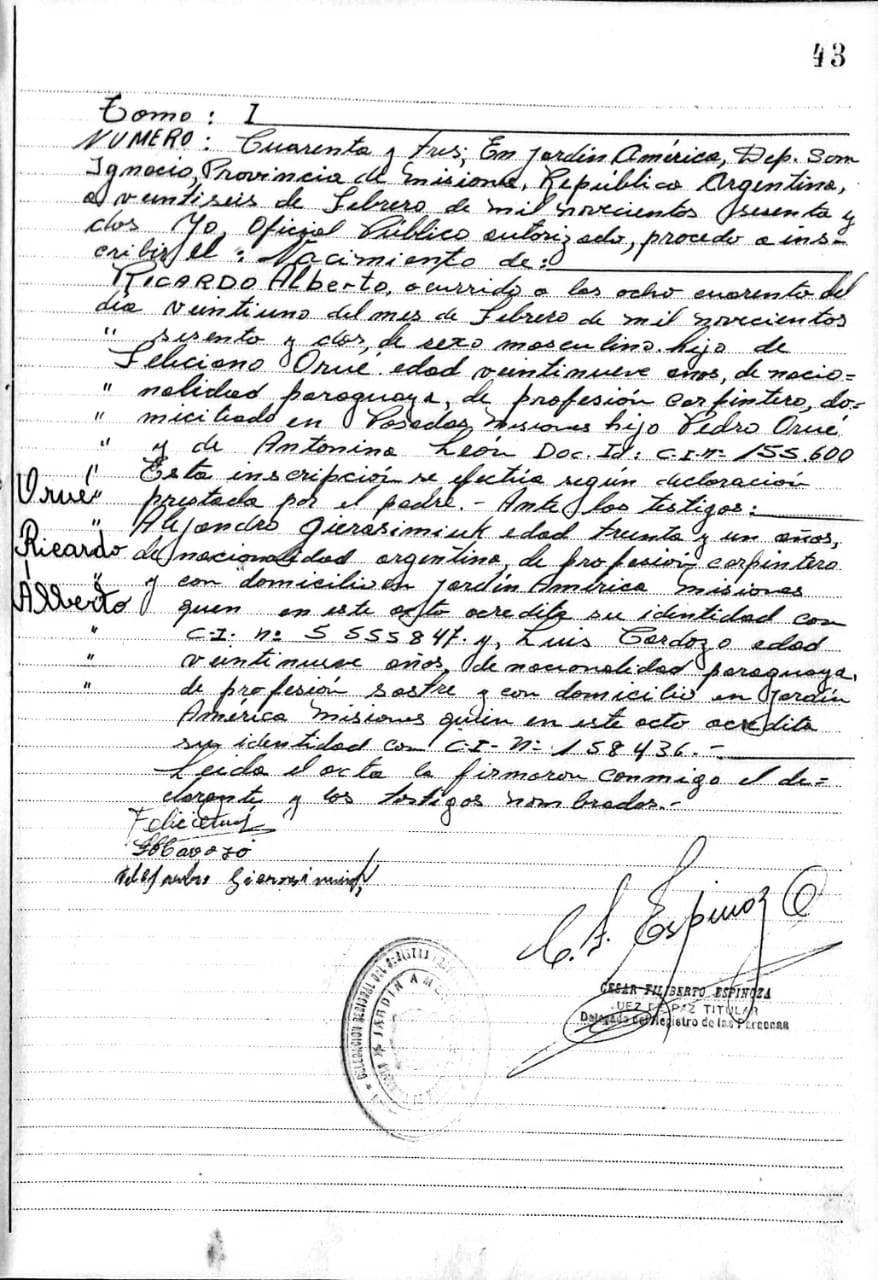 43
Tomo: I
NUMERO: Cuarenta y tres; En Jardín América, Dep. San
Ignacio, Provincia de Misiones, República Argentina,
a veintiseis de Febrero de mil novecientos sesenta y
dos Yo, Oficial Público autorizado, procedo a ins-
cribir el: Nacimiento de:
RICARDO Alberto, ocurrido a las ocho cuarenta del
día veintiuno del mes de Febrero de mil novecientos
" sesenta y dos, de sexo masculino hijo de
Feliciano Orué edad veintinueve años, de nacio=
" nalidad paraguaya, de profesión carpintero, do=
" miciliado en Posadas Misiones hijo Pedro Orué
" y de Antonina León Doc. Id: C.I. nº 155.600
" Esta inscripción se efectúa según declaración
Orué " prestada por el padre.- Ante los testigos:
" Alejandro Gierasimiuk edad treinta y un años,
Ricardo de nacionalidad argentina, de profesión carpintero
" y con domicilio en Jardín América Misiones
Alberto quien en este acto acredita su identidad con
" C.I. nº 5 555847. y, Luis Cardozo edad
" veintinueve años, de nacionalidad paraguaya,
" de profesión sastre y con domicilio en Jardín
América Misiones quien en este acto acredita
su identidad con C.I. nº 158436.-
Leida el acta la firmaron conmigo el de=
clarante y los testigos nombrados.-
C. F. Espinoza
CESAR FILIBERTO ESPINOZA
JUEZ DE PAZ TITULAR
Delegado del Registro de las Personas
DELEGACION REGIONAL DEL REGISTRO
JARDIN AMERICA